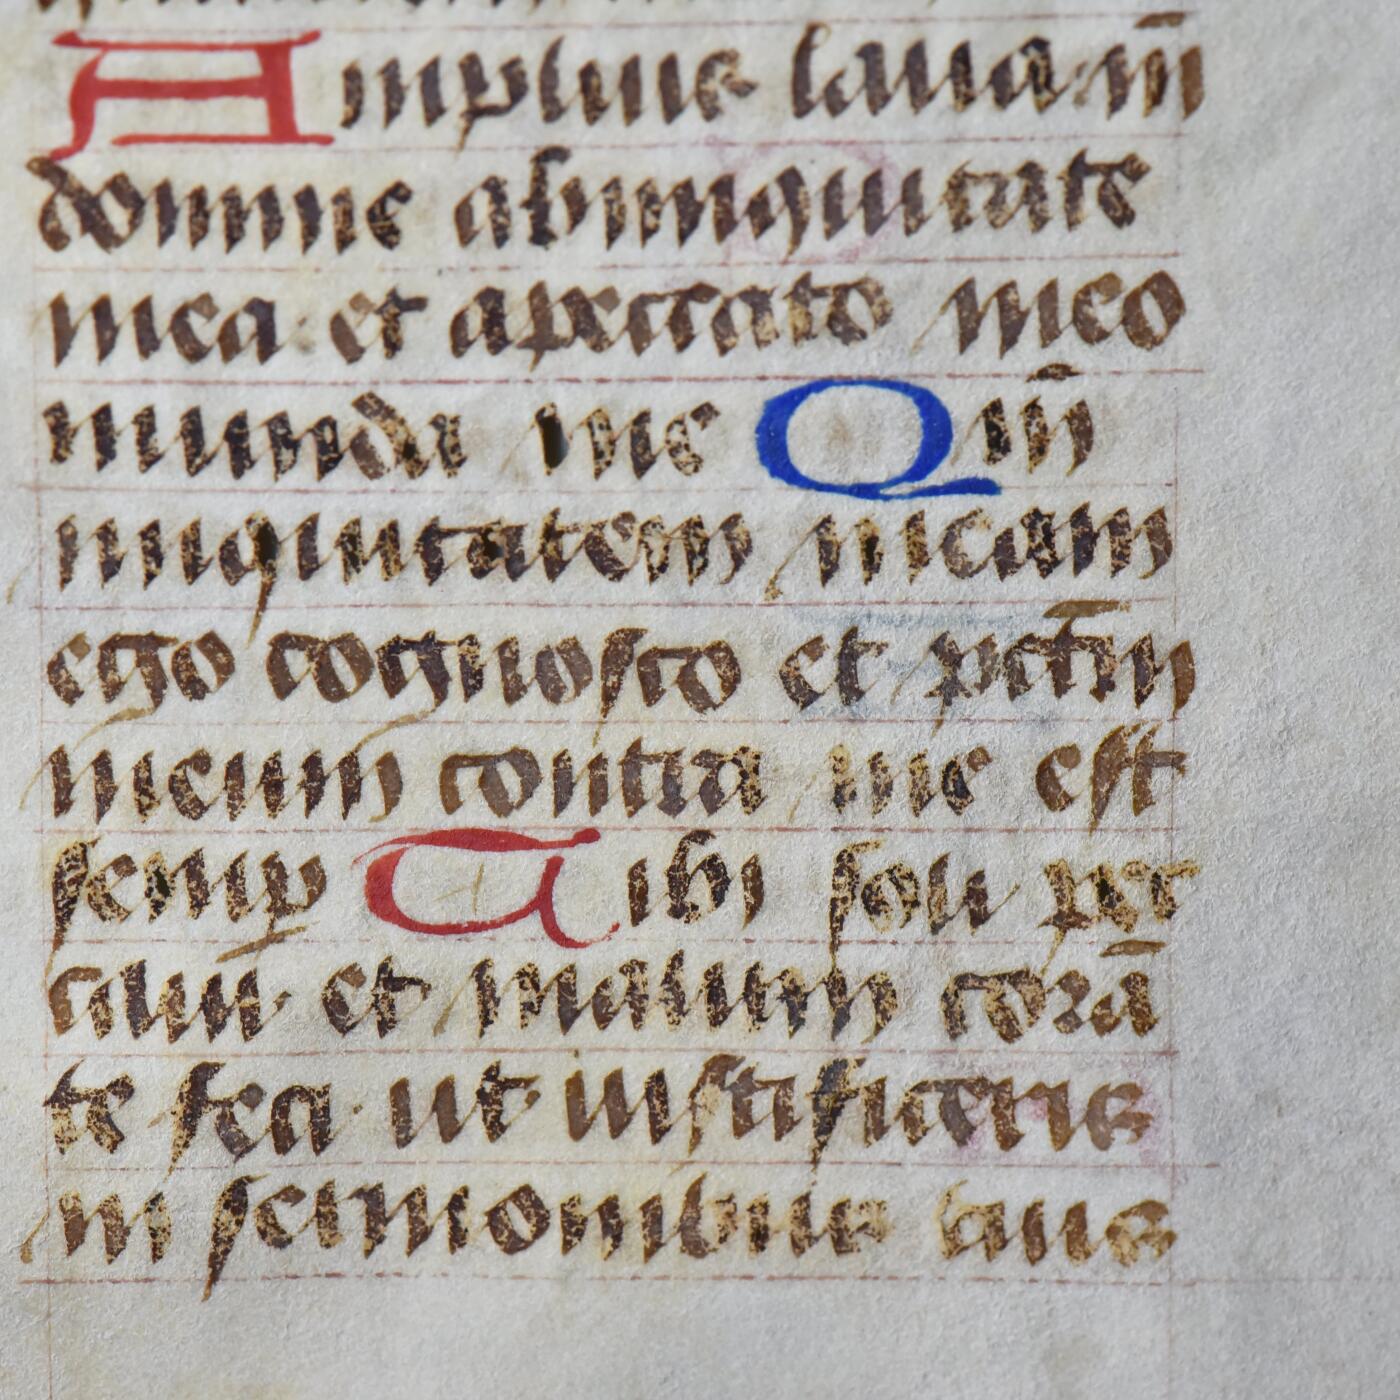 Amplius laua m̄
domine abiniquitate
mea et apeccato meo
munda me Qm̄
iniquitatem meam
ego cognosco et pctm̄
meum contra me est
semꝑ Tibi soli pec
caui et malum corā
te feci ut iustificeris
in sermonibus tuis